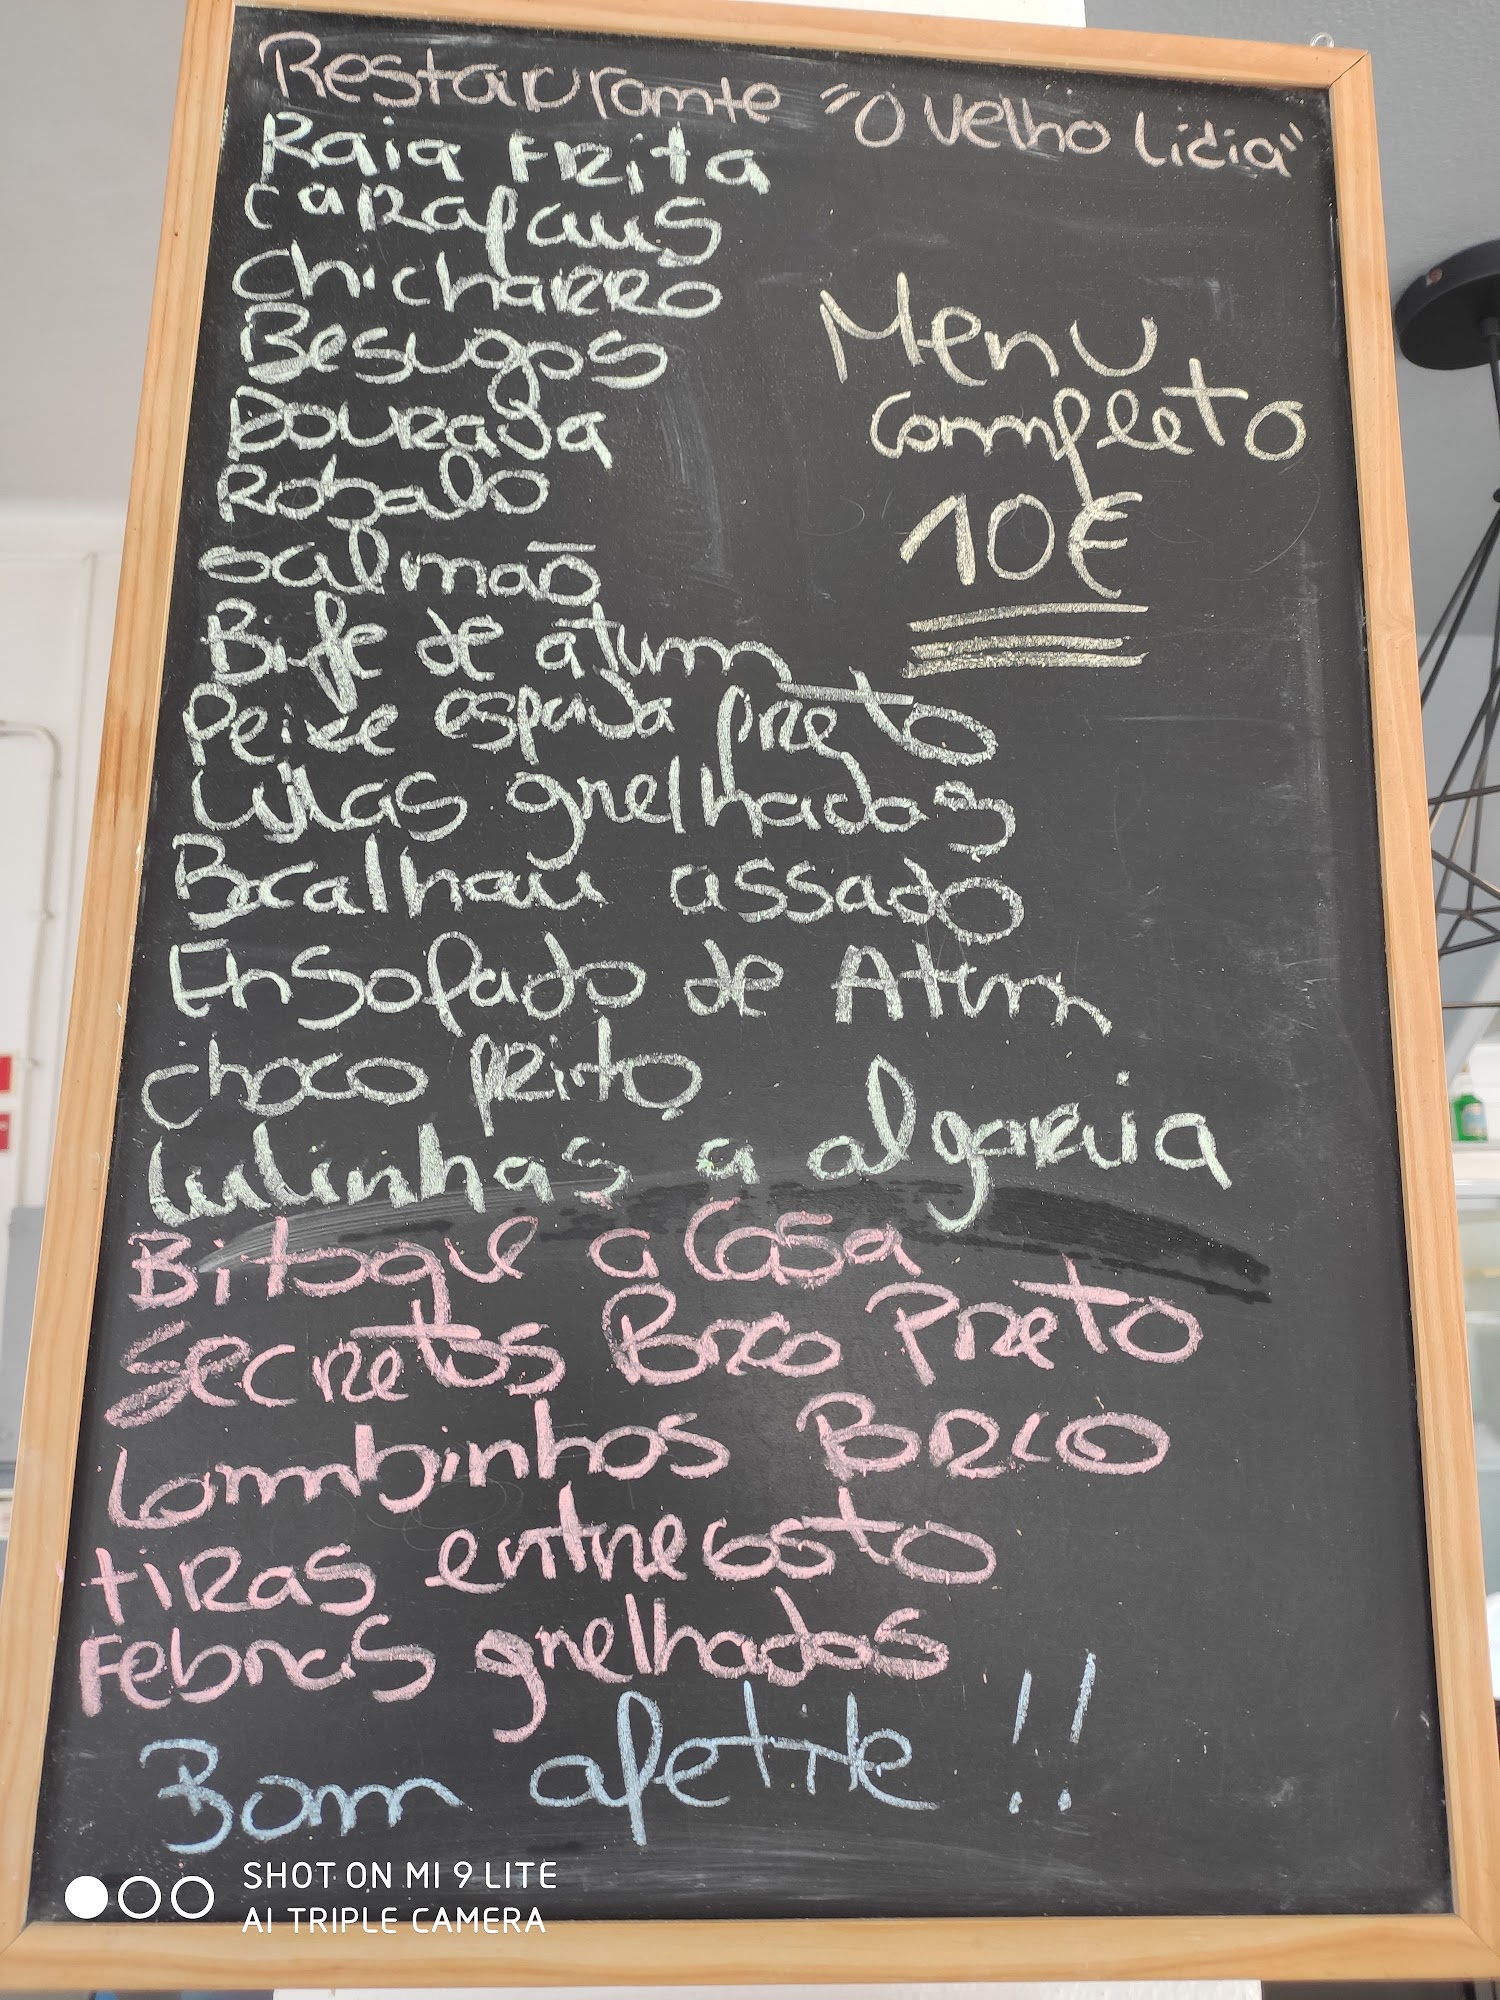 Restaurante "O Velho Lidia"
Raia FRita
CaRapaus
ChichaRRO
Besugos
DouRada
Robalo
Salmão
Bife de atum
Peixe espada preto
Lulas grelhadas
Bacalhau assado
Ensopado de Atum
choco fRito
Lulinhas a algaRvia
Bitoque a Casa
Secretos Porco Preto
Lombinhos PoRco
tiRas entrecosto
Febras grelhadas
Bom apetite !!
Menu
Completo
10€
SHOT ON MI 9 LITE
AI TRIPLE CAMERA